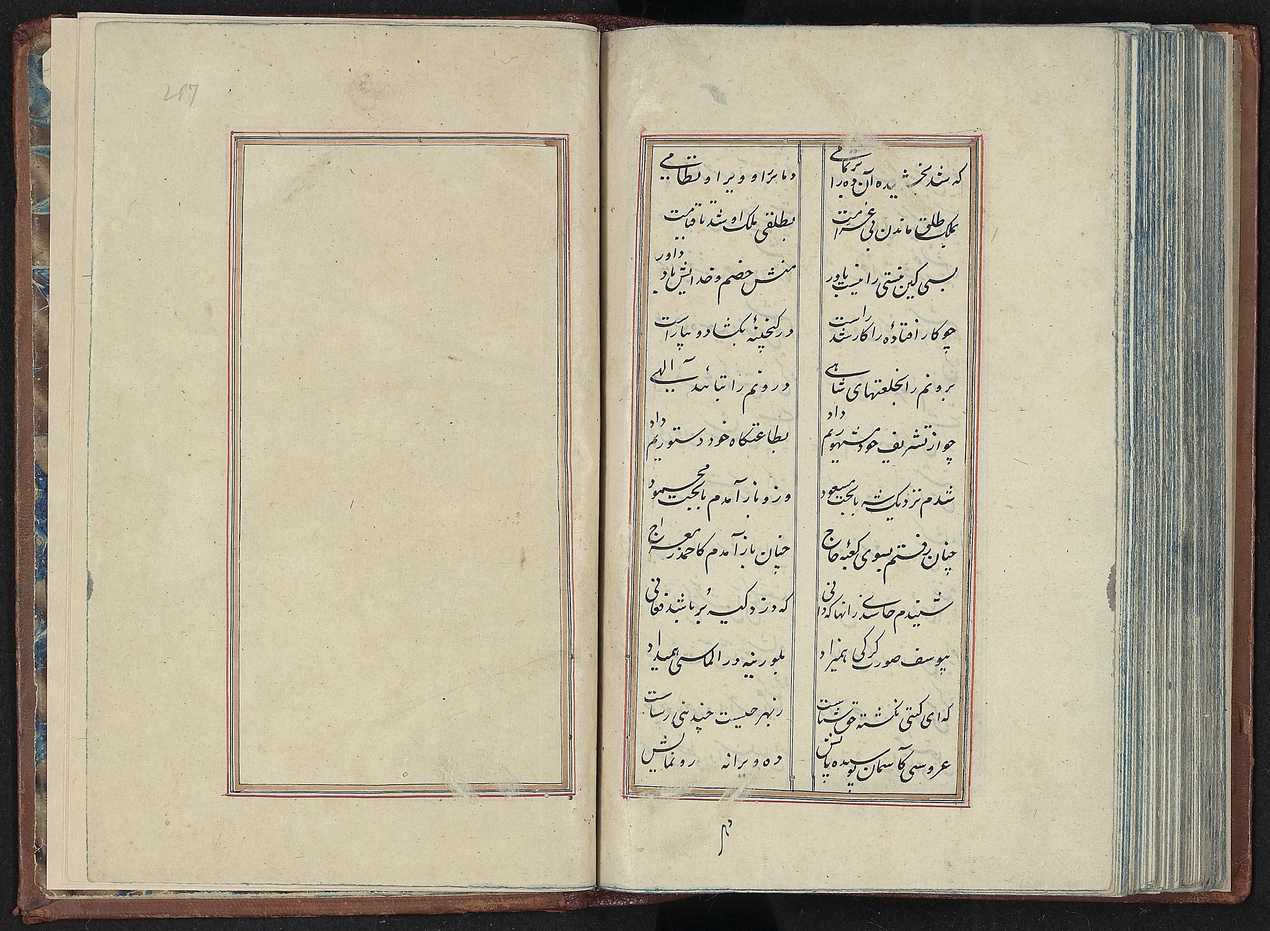 207
که شد بخشیده آن ده را بر تمامی دما بر او ویرا و نظامی
بملک طلق ماندن بی غرامت بطلقی ملک او شد تا قیامت
بسی کین نیستی را نیست باور منش خصم و خدایش باد داور
چو کار افتادهٔ را کار شد راست در گنجینهٔ بگشاد و بیاراست
برونم را بخلعتهای شاهی درونم را بتائید آلهی
چو از تشریف خود مشهوریم داد بطاعتگاه خود دستوریم داد
شدم نزدیک شه بابخت مسعود وزو باز آمدم بابخت محمود
چنان رفتم بسوی کعبهٔ حاج چنان باز آمدم کاحمد ز معراج
شنیدم حاسدی زانها که دانی که دزد کیسه بُر باشد فغانی
بیوسف صورت گرگی همیزاد بلورینه در الماسی همیداد
که ای گیتی نگشته حق شناست زبهر چیست چندینی
عروسی کآسمان بوسیده پایش ده ویرانه رونمایش